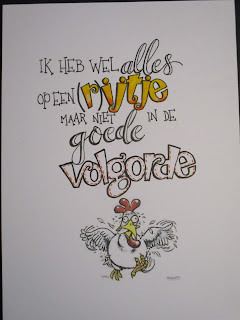 IK HEB WEL alles
OP EEN (r)ijtje
MAAR NIET IN DE
goede
volgorde